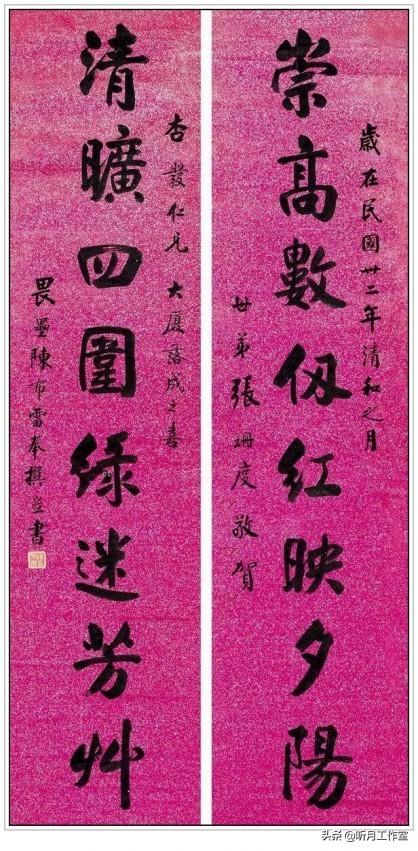 歲在民國卅二年清和之月
崇高數仞紅映夕陽
世弟張度敬賀
杏仁兄 大廈落成之喜
清曠四圍綠迷芳艸
畏壘陳布雷奉撰並書
头条 @听月工作室